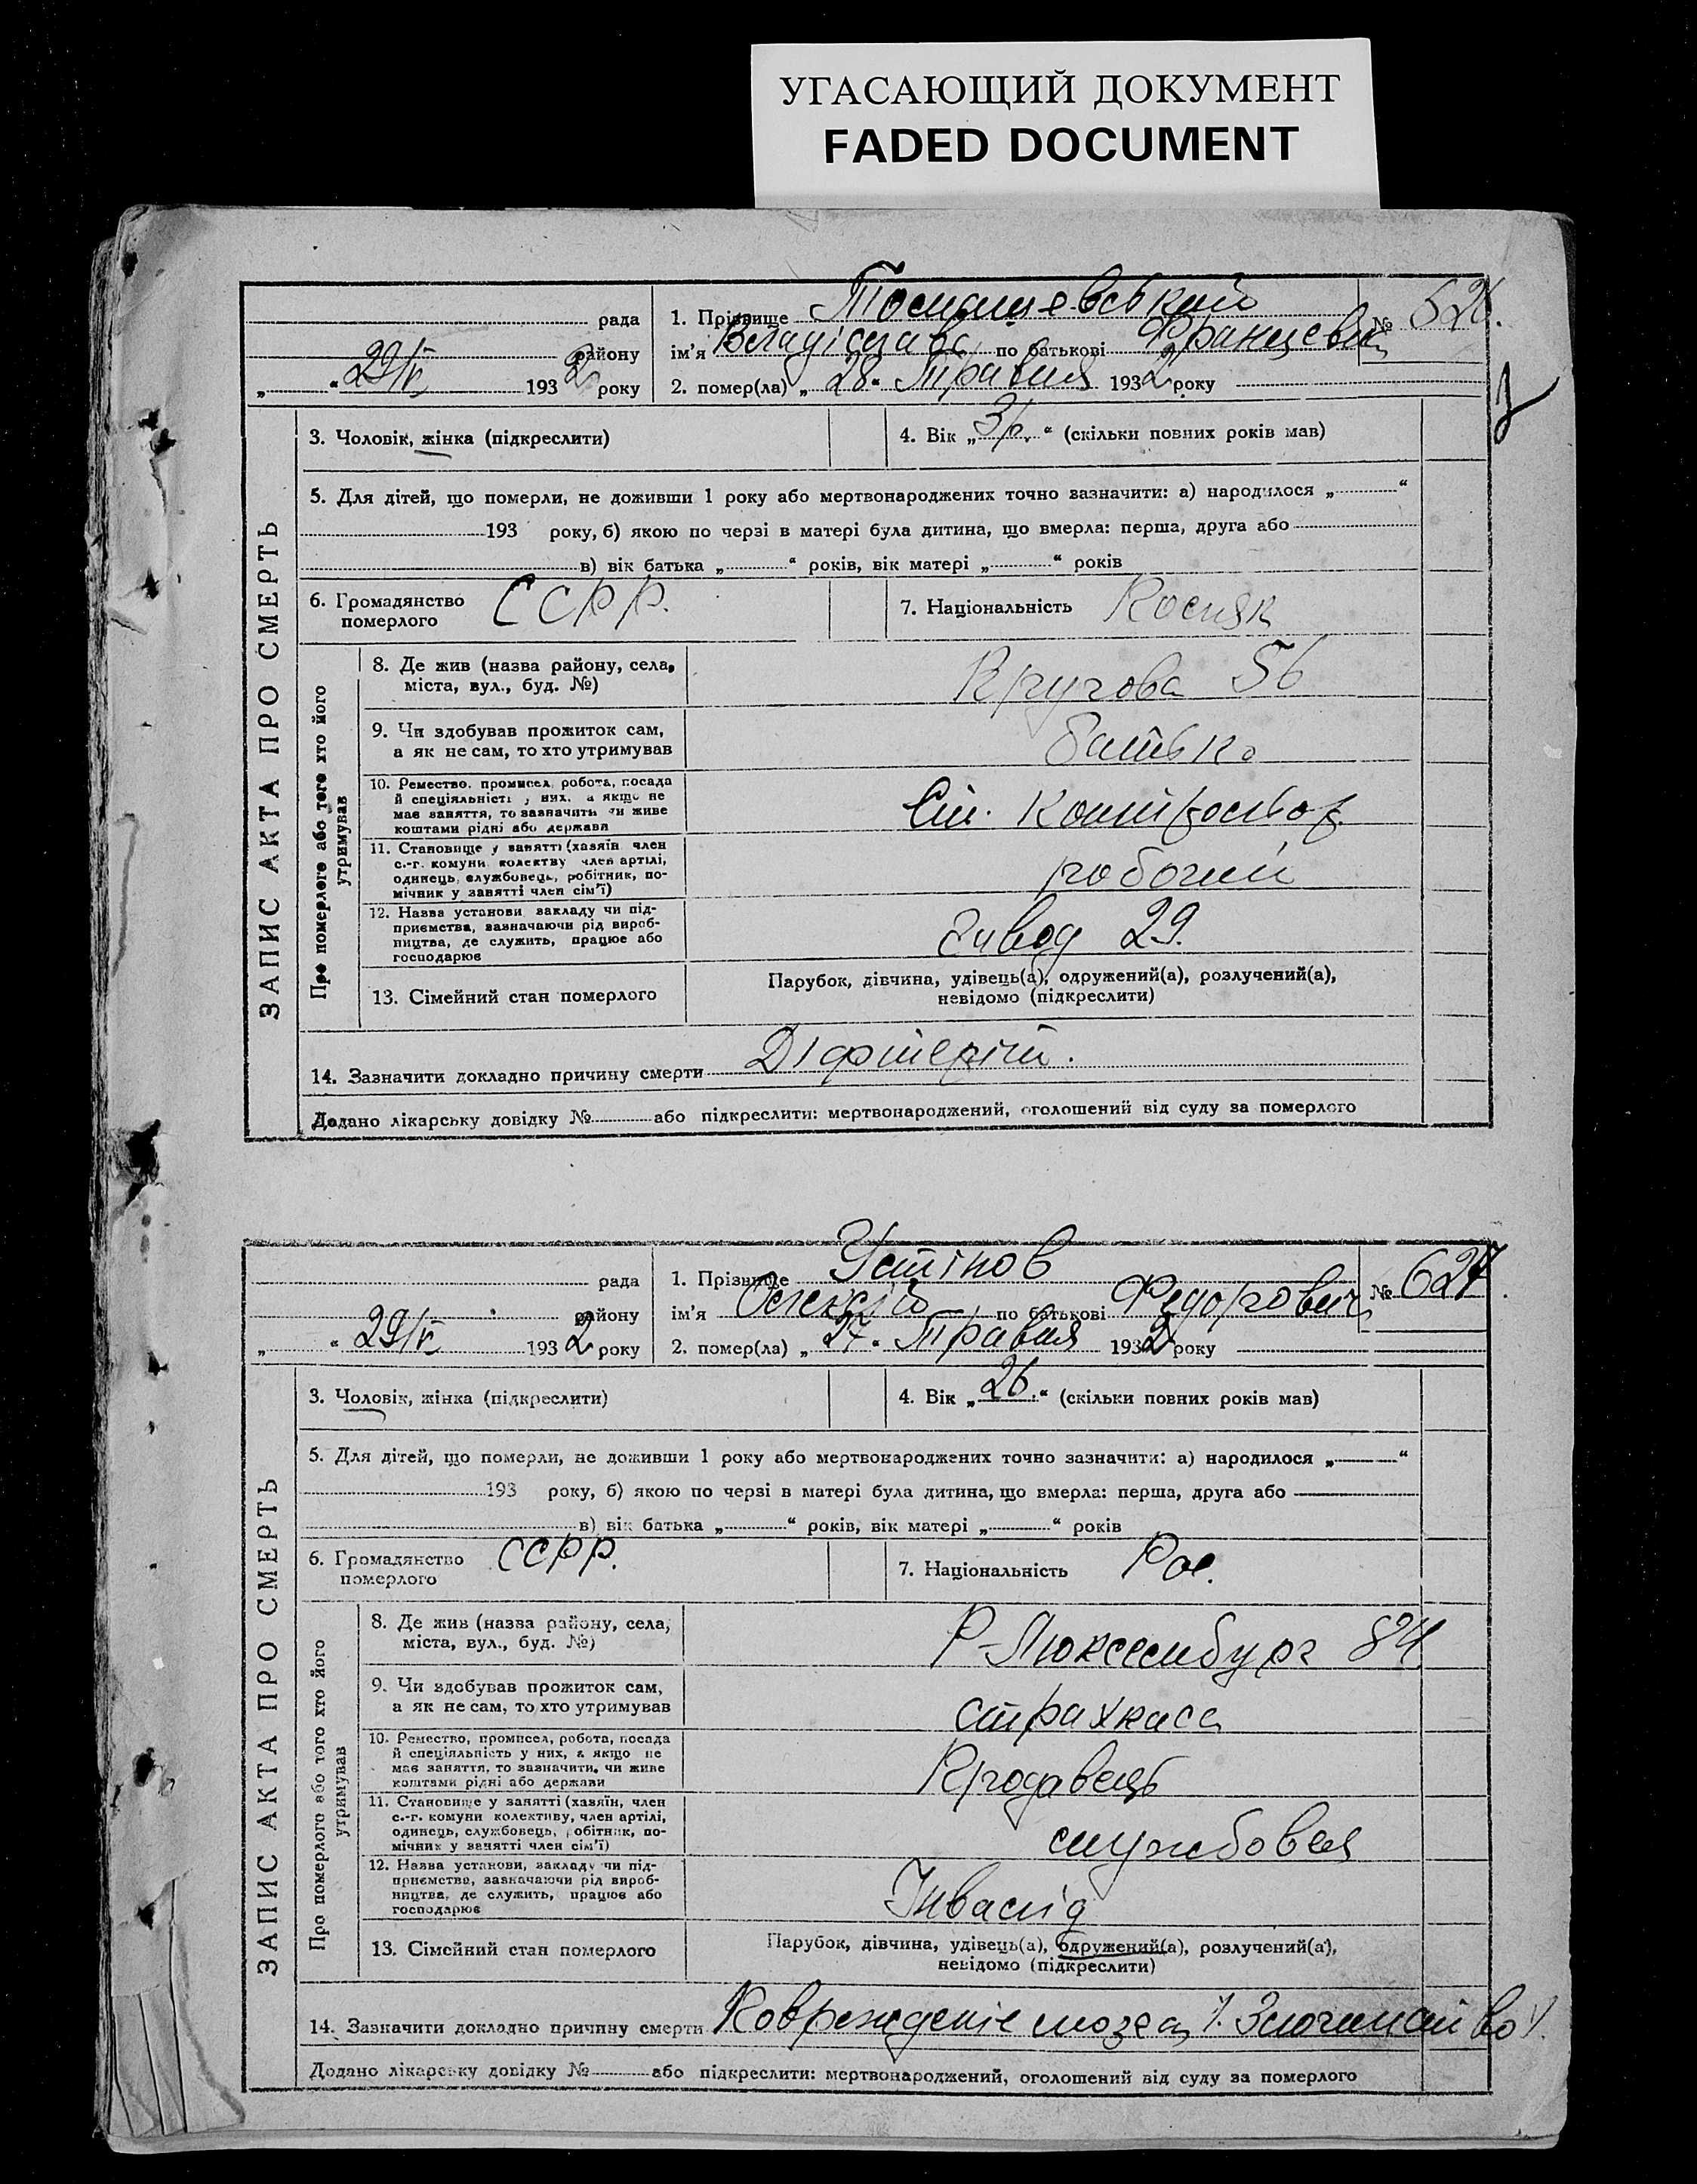 УГАСАЮЩИЙ ДОКУМЕНТ
FADED DOCUMENT
рада
району
„ “ 29/V 1932 року
1. Прізвище Томашевський
ім’я Владіслава по батькові Францевич
№ 626.
2. помер(ла) „28“ Травня 1932 року
ЗАПИС АКТА ПРО СМЕРТЬ
3. Чоловік, жінка (підкреслити)
4. Вік „3р.“ (скільки повних років мав)
5. Для дітей, що померли, не доживши 1 року або мертвонароджених точно зазначити: а) народилося „ “
193 року, б) якою по черзі в матері була дитина, що вмерла: перша, друга або
в) вік батька „ “ років, вік матері „ “ років
6. Громадянство
померлого
ССРР.
7. Національність Поляк
Про померлого або того хто його
утримував
8. Де жив (назва району, села,
міста, вул., буд. №)
56
9. Чи здобував прожиток сам,
а як не сам, то хто утримував
батько
10. Ремество, промисел, робота, посада
й спеціяльність у них, а якщо не
має заняття, то зазначить чи живе
коштами рідні або держави
Ст.
11. Становище у занятті (хазяїн член
с.-г. комуни колективу член артілі,
одинець, службовець, робітник, по-
мічник у занятті член сім’ї)
робочий
12. Назва установи закладу чи під-
приємства, зазначаючи рід вироб-
ництва, де служить, працює або
господарює
завод 29.
13. Сімейний стан померлого
Парубок, дівчина, удівець(а), одружений(а), розлучений(а),
невідомо (підкреслити)
14. Зазначити докладно причину смерти Діфтеріт.
Додано лікарську довідку № або підкреслити: мертвонароджений, оголошений від суду за померлого
рада
району
„ “ 29/V 1932 року
1. Прізвище Устінов
ім’я Олексій по батькові Федорович
№ 627.
2. помер(ла) „27“ Травня 1932 року
ЗАПИС АКТА ПРО СМЕРТЬ
3. Чоловік, жінка (підкреслити)
4. Вік „26.“ (скільки повних років мав)
5. Для дітей, що померли, не доживши 1 року або мертвонароджених точно зазначити: а) народилося „ “
193 року, б) якою по черзі в матері була дитина, що вмерла: перша, друга або
в) вік батька „ “ років, вік матері „ “ років
6. Громадянство
померлого
ССРР.
7. Національність Рос.
Про померлого або того хто його
утримував
8. Де жив (назва району, села,
міста, вул., буд. №)
Р-Люксембург 84
9. Чи здобував прожиток сам,
а як не сам, то хто утримував
страхкасса
10. Ремество, промисел, робота, посада
й спеціяльність у них, а якщо не
має заняття, то зазначити, чи живе
коштами рідні або держави
Продавець
11. Становище у занятті (хазяїн, член
с.-г. комуни колективу, член артілі,
одинець, службовець, робітник, по-
мічник у занятті член сім’ї)
службовця
12. Назва установи, закладу чи під-
приємства, зазначаючи рід вироб-
ництва, де служить, працює або
господарює
Інвалід
13. Сімейний стан померлого
Парубок, дівчина, удівець(а), одружений(а), розлучений(а),
невідомо (підкреслити)
14. Зазначити докладно причину смерти Поврежденіе мозга
Додано лікарську довідку № або підкреслити: мертвонароджений, оголошений від суду за померлого